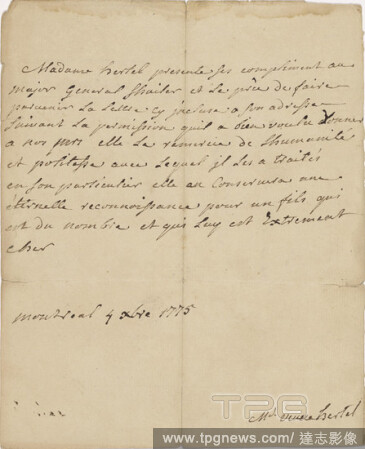 Madame hertel presente ses compliment au
major General Shailer et Le prie de faire
parvenir La Lettre cy incluse a son adresse
Suivant La permission quil a bien voulu donner
a nos elle Le remercie de Lhumanité
et politesse avec Lequel jl Les a traités
en son particulier elle en Conservera une
éternelle reconnoissance pour un fils qui
est du nombre et qui Luy est Extrement
cher
montreal 4 xbre 1775
hertel
TPG
www.tpgnews.com/達志影像